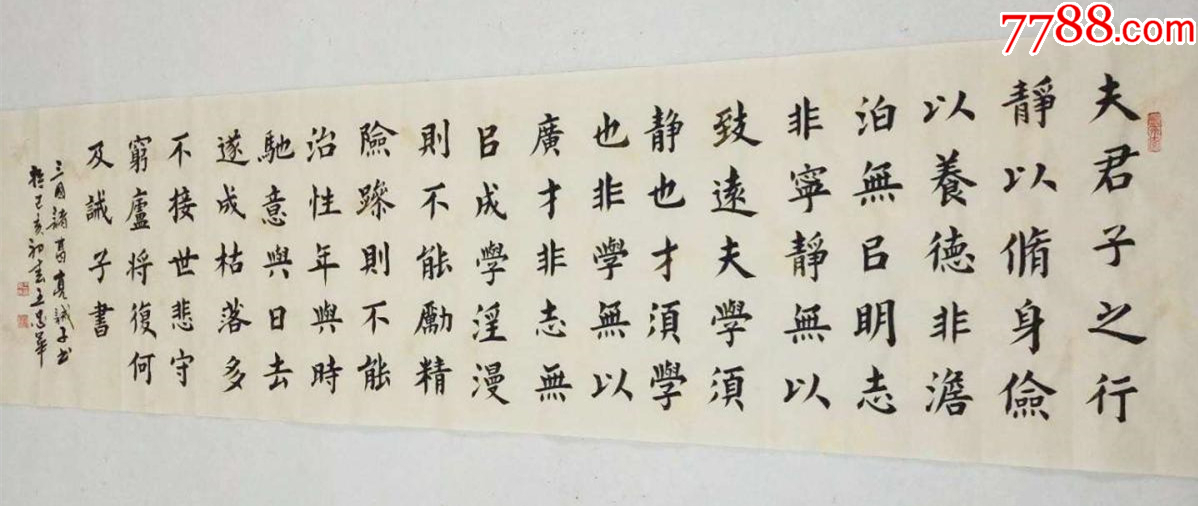 7788.com
夫君子之行
靜以脩身儉
以養德非澹
泊無㠯明志
非寧靜無以
致遠夫學須
静也才須學
也非學無以
廣才非志無
㠯成學淫漫
則不能勵精
險躁則不能
治性年與時
馳意與日去
遂成枯落多
不接世悲守
窮廬将復何
及誡子書
三国諸葛亮誡子书
己亥初春王忠華